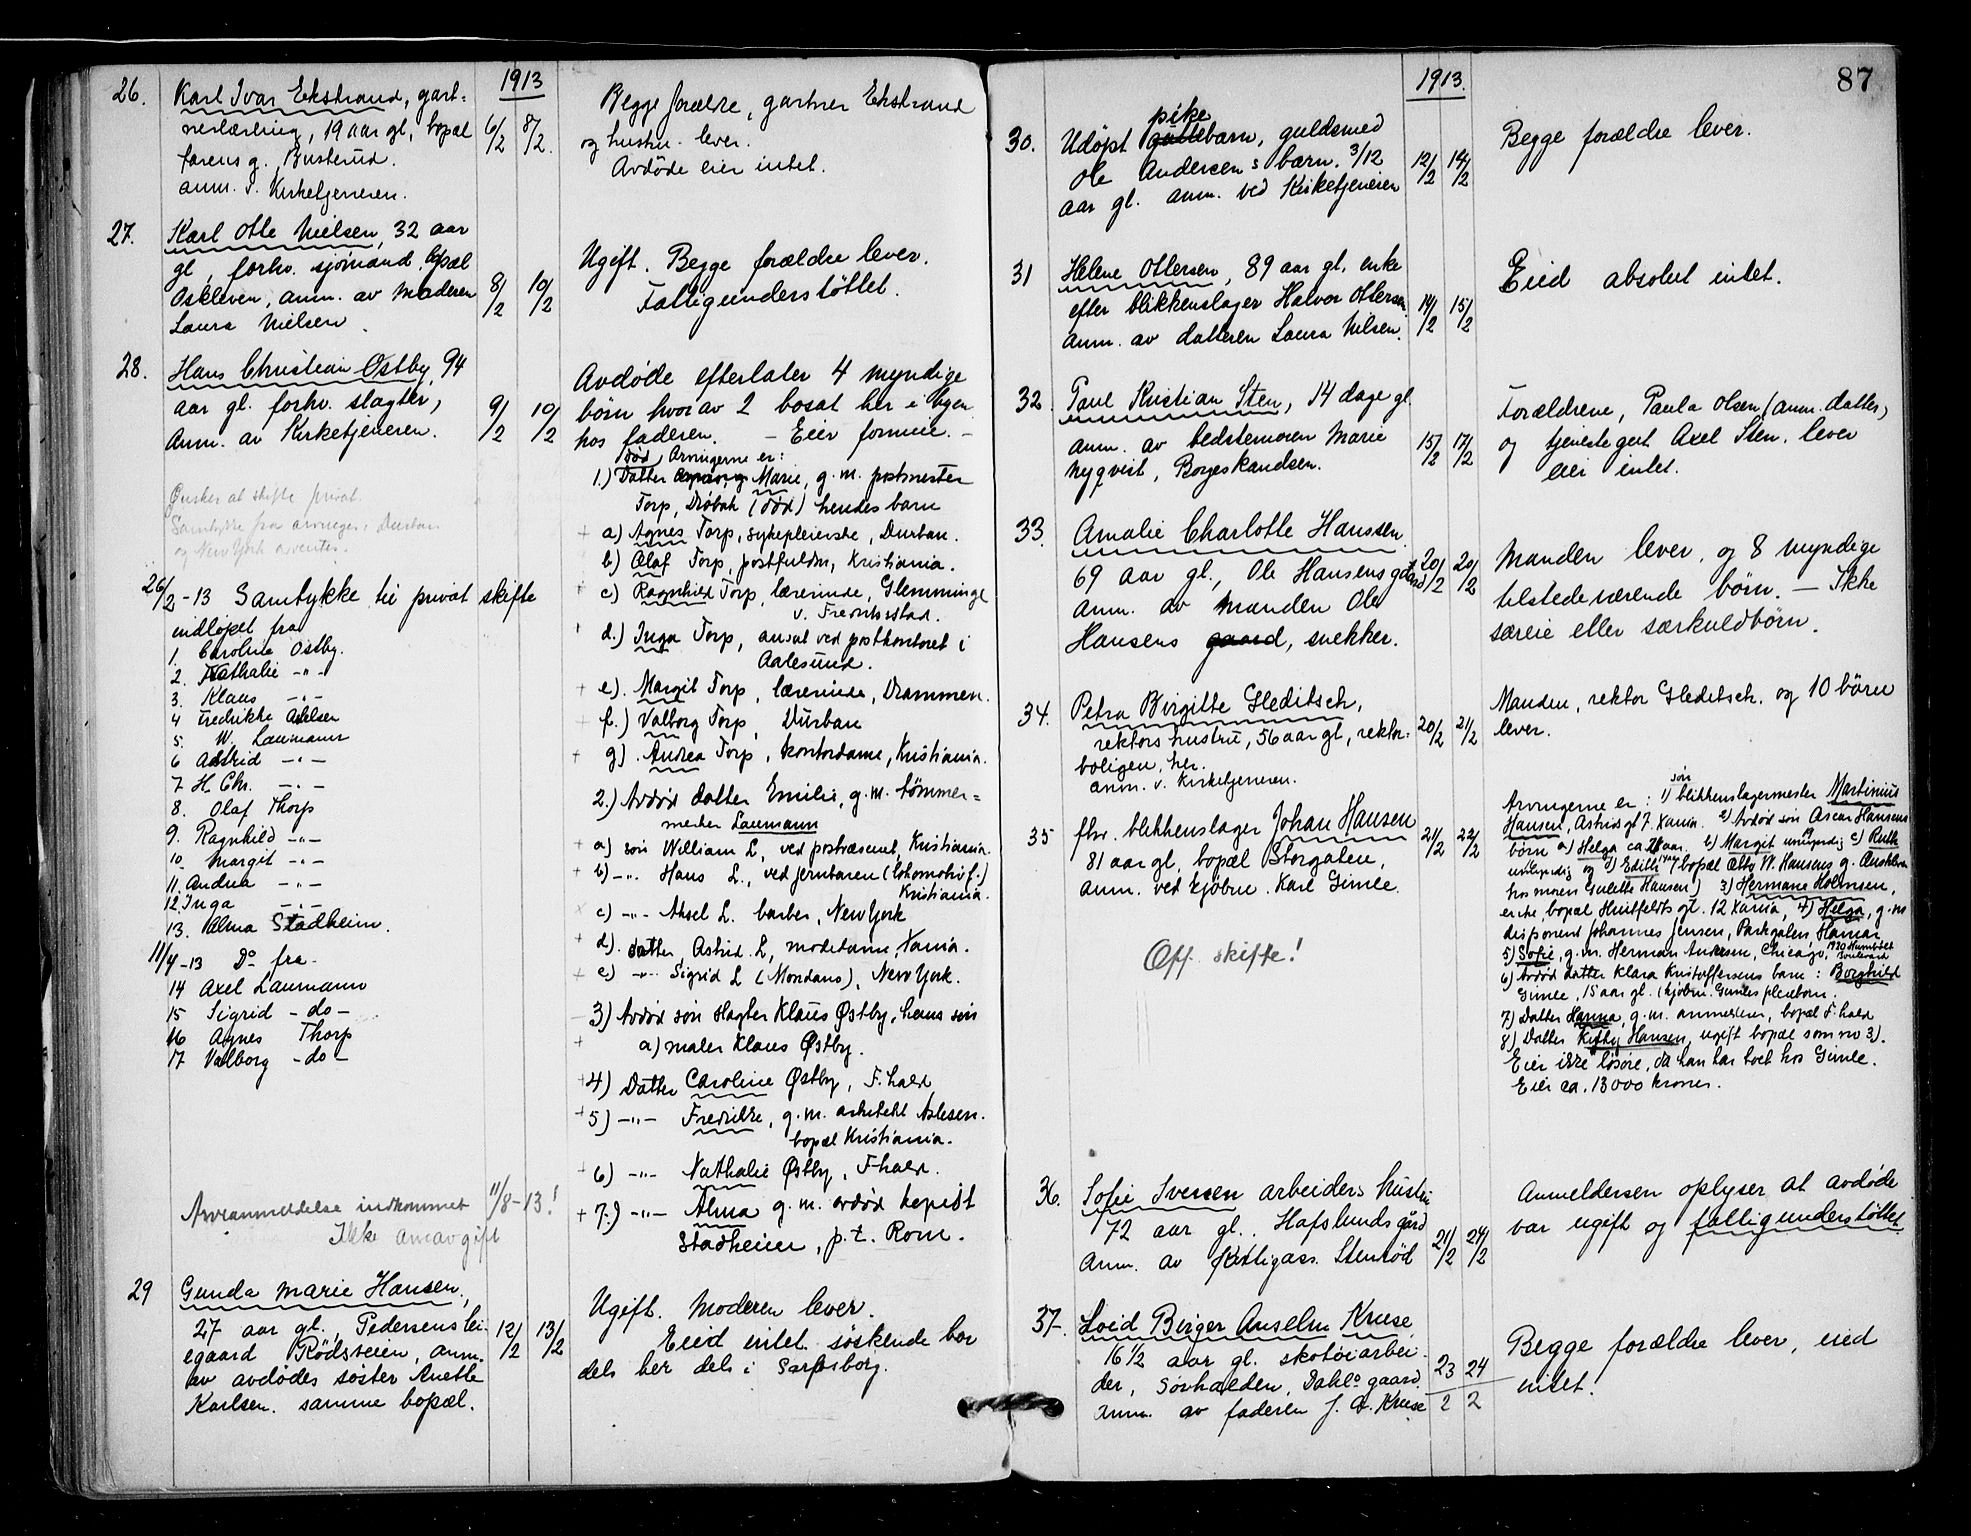 1913
26. Karl Ivar Ekstrand, gart-
nerlærling, 19 aar gl, bopæl
farens g. Busterud.
anm. v. Kirketjeneren.
6/2 8/2
Begge forældre, gartner Ekstrand
og hustru lever.
Avdøde eier intet.
27. Karl Otto Nielsen, 32 aar
gl, forhv. sjømand, bopæl
Oskleven, anm. av moderen
Laura Nielsen.
8/2 10/2
Ugift. Begge forældre lever.
Fattigunderstöttet.
28. Hans Christian Østby, 94
aar gl. forhv. slagter,
Anm. av Kirketjeneren.
9/2 10/2
Ønsker at skifte privat.
Samtykke fra arvinger i Durban
og New York aventes.
26/2-13 Samtykke til privat skifte
indløpet fra
1. Caroline Østby.
2. Nathalie -"-
3. Klaus -"-
4 Fredrikke Aslesen
5. W. Laumann
6 Astrid -"-
7 H. Chr. -"-
8. Olaf Thorp
9. Ragnhild -"-
10. Margit -"-
11. Andrea -"-
12. Inga -"-
13. Alma Stadheim.
11/4-13 Do fra
14 Axel Laumann
15 Sigrid -do-
16 Agnes Thorp
17 Valborg -do-
Arveanmeldelse indkommet 11/8-13!
Ikke arveavgift
Avdøde efterlater 4 myndige
børn hvorav 2 bosat her i byen
hos faderen. - Eier formue. -
Arvingerne er:
1.) død Datter Marie, g.m. postmester
Torp, Drøbak (død) hendes barn
+ a) Agnes Torp, sykepleierske, Durban.
b) Olaf Torp, postfuldm, Kristiania.
+ c) Ragnhild Torp, lærerinde, Glemminge
v. Fredrikstad.
+ d.) Inga Torp, ansat ved postkontoret i
Aalesund.
+ e). Margit Torp, lærerinde, Drammen.
+ f.) Valborg Torp, Durban
+ g). Andrea Torp, kontordame, Kristiania.
2.) Avdød datter Emilie, g.m. tømmer-
mester Laumann
+ a) søn William L, ved postvæsenet, Kristiania.
+ b) -"- Hans L., ved jernbanen (lokomotivf.)
Kristiania.
c) -"- Aksel L. barber, New York
+ d). datter, Astrid L, modedame, Xania.
+ e) -"- Sigrid L (Mondans), New York.
3) Avdød søn slagter Klaus Østby, hans søn
+ a) maler Klaus Østby.
+ 4) Datter Caroline Østby, F.hald
+ 5) -"- Fredrikke, g.m. arkitekt Aslesen.
bopæl Kristiania.
+ 6) -"- Nathalie Østby, F.hald.
+ 7.) -"- Alma g.m. avdød kopist
Stadheim, p.t. Rom.
29 Gunda Marie Hansen,
27 aar gl., Pedersens lei-
egaard Rødsveien, anm.
av avdødes søster Anette
Karlsen. samme bopæl.
12/2 13/2
Ugift. Moderen lever.
Eied intet. søskende bor
dels her dels i Sarpsborg.
87
1913.
30. Udøpt guttebarn, guldsmed
pike
Ole Andersens barn. 3/12
aar gl. anm. ved Kirketjeneren
12/2 14/2
Begge forældre lever.
31 Helene Ottersen, 89 aar gl. enke
efter blikkenslager Halvor Ottersen
anm. av datteren Laura Nilsen.
14/2 15/2
Eied absolut intet.
32. Paul Kristian Sten, 14 dage gl
anm. av bedstemoren Marie
Nyqvist, Borgeskandsen.
15/2 17/2
Forældrene, Paula Olsen (anm. datter)
og tjenestegut Axel Sten. lever
eier intet.
33. Amalie Charlotte Hanssen
69 aar gl., Ole Hansens gaard
anm. av manden Ole
Hansens gaard, snekker.
20/2 20/2
Manden lever, og 8 myndige
tilstedeværende börn. - Ikke
særeie eller særkuldbörn.
34. Petra Birgitte Gleditsch,
rektors hustru, 56 aar gl, rektor-
boligen, her.
anm. v. Kirketjeneren.
20/2 21/2
Manden, rektor Gleditsch. og 10 börn
lever.
35 fhv. blikkenslager Johan Hansen
81 aar gl, bopæl Storgaten,
anm. ved kjöbm. Karl Gimle.
21/2 22/2
Off. skifte!
Arvingerne er: 1) søn blikkenslagermester Martinius
Hansen, Astrids gt 7. Xania. 2) Avdød søn Oscar Hansens
børn a) Helga ca 21 aar. b) Margit umyndig c) Ruth
umyndig og d) Edith bopæl Otto W. Hansens g.
hos moren Gulette Hansen) 3) Hermane Holmsen,
enke, bopæl Huitfeldts gt. 12 Xania, 4) Helga, g.m
disponent Johannes Jensen, Parkgaten, Hamar
5) Sofie, g.m. Herman Andersen, Chicago, 1920 Humboldt Boulevard
6) Avdød datter Klara Kristoffersens barn: Borghild
Gimle, 15 aar gl. (kjøbm. Gimles pleiebarn.
7) Datter Hanna, g.m. anmelderen, bopæl F.hald
8) Datter Kitty Hansen, ugift bopæl som no 3).
Eier ikke løsøre, da han har boet hos Gimle.
Eier ca. 13000 kroner.
36. Sofie Iversen arbeiders hustru
72 aar gl.. Hafslunds gård
Anm. av Stenrød
21/2 24/2
Anmelderen oplyser at avdøde
var ugift og fattigunderstöttet
37. Loid Birger Anselm Kruse
16 1/2 aar gl. skotøiarbei-
der, Sørhalden, Dahls gaard.
anm. av faderen J. A. Kruse
23/2 24/2
Begge forældre lever, eied
intet.